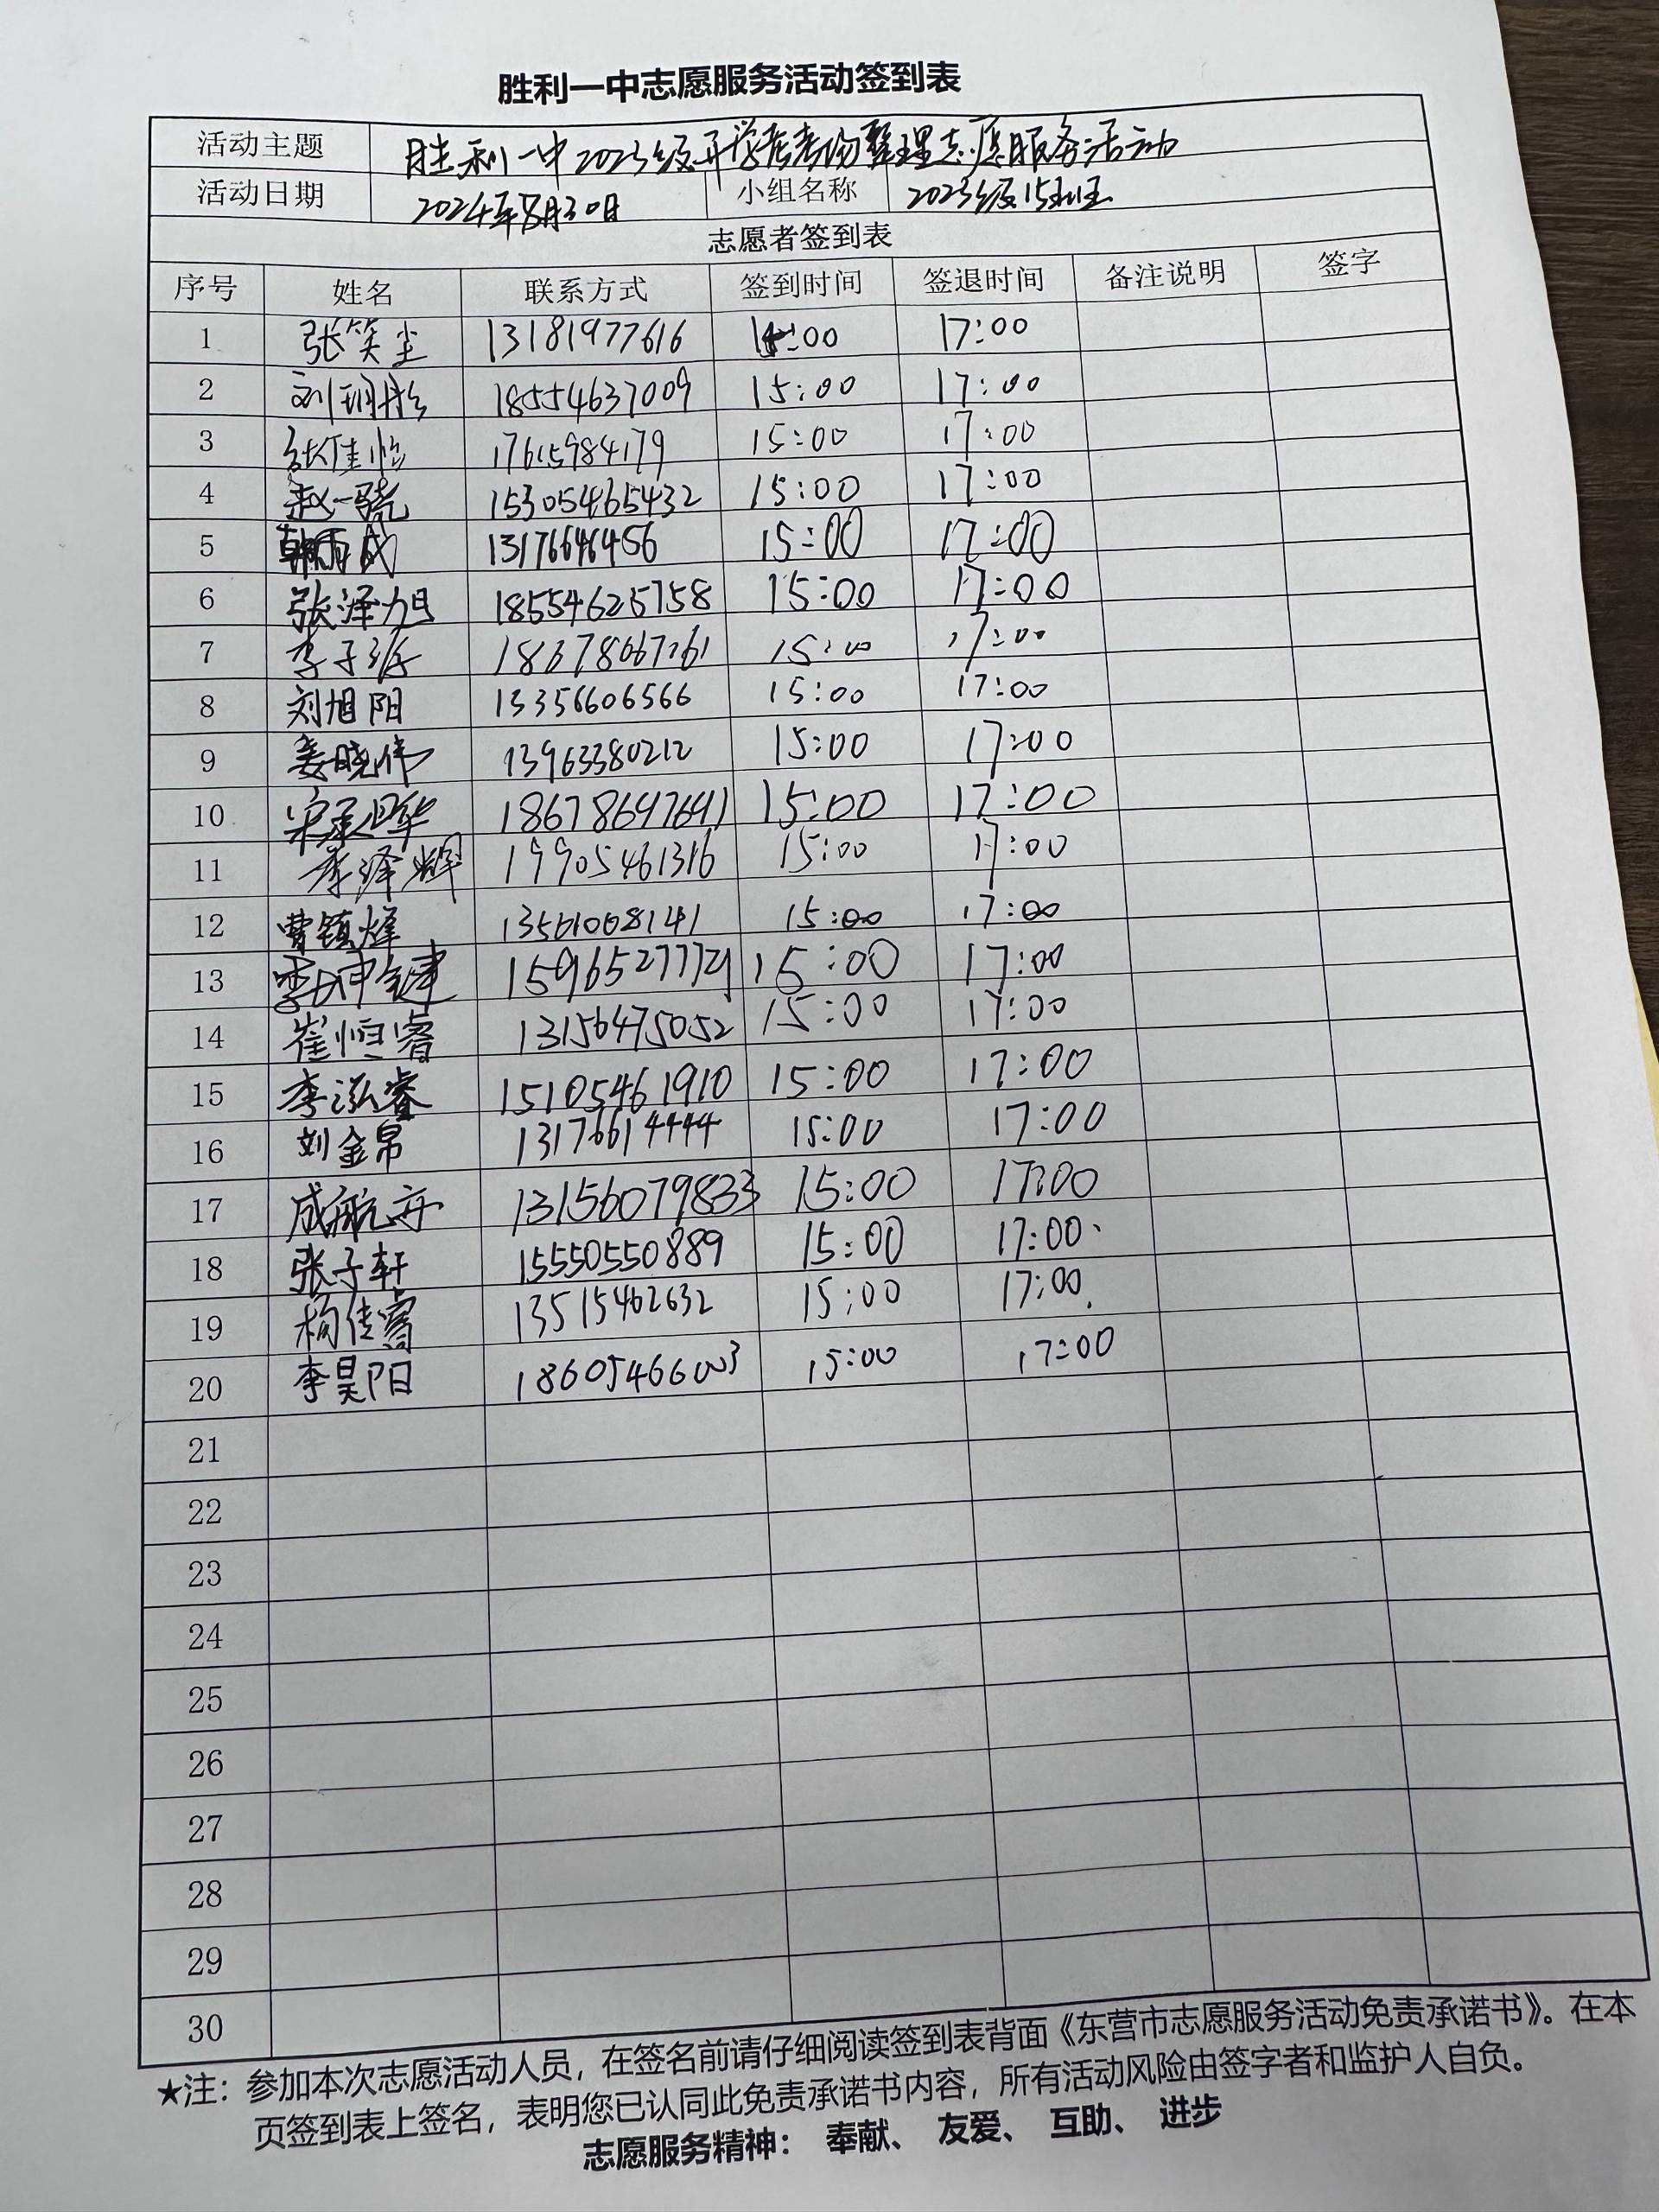 胜利一中志愿服务活动签到表
活动主题 胜利一中2023级开学考考场整理志愿服务活动
活动日期 2024年8月30日 小组名称 2023级15班
志愿者签到表
序号 姓名 联系方式 签到时间 签退时间 备注说明 签字
1 张笑尘 13181977616 15:00 17:00
2 刘玥彤 18554637009 15:00 17:00
3 张佳怡 17615984179 15:00 17:00
4 赵一骁 15305465432 15:00 17:00
5 韩雨成 13176646456 15:00 17:00
6 张泽旭 18554625758 15:00 17:00
7 李子 15:00 17:00
8 刘旭阳 13356606566 15:00 17:00
9 姜晓伟 13963380212 15:00 17:00
10 宋承晔 18678647641 15:00 17:00
11 李泽辉 19905461316 15:00 17:00
12 曹镇烽 13561008141 15:00 17:00
13 李坤键 15:00 17:00
14 崔恒睿 13156475052 15:00 17:00
15 李泓睿 15105461910 15:00 17:00
16 刘金帛 13176614444 15:00 17:00
17 成航亦 13156079833 15:00 17:00
18 张子轩 15550550889 15:00 17:00
19 杨佳睿 13515462632 15:00 17:00
20 李昊阳 18605466003 15:00 17:00
21
22
23
24
25
26
27
28
29
30
★注：参加本次志愿活动人员，在签名前请仔细阅读签到表背面《东营市志愿服务活动免责承诺书》。在本
页签到表上签名，表明您已认同此免责承诺书内容，所有活动风险由签字者和监护人自负。
志愿服务精神： 奉献、 友爱、 互助、 进步